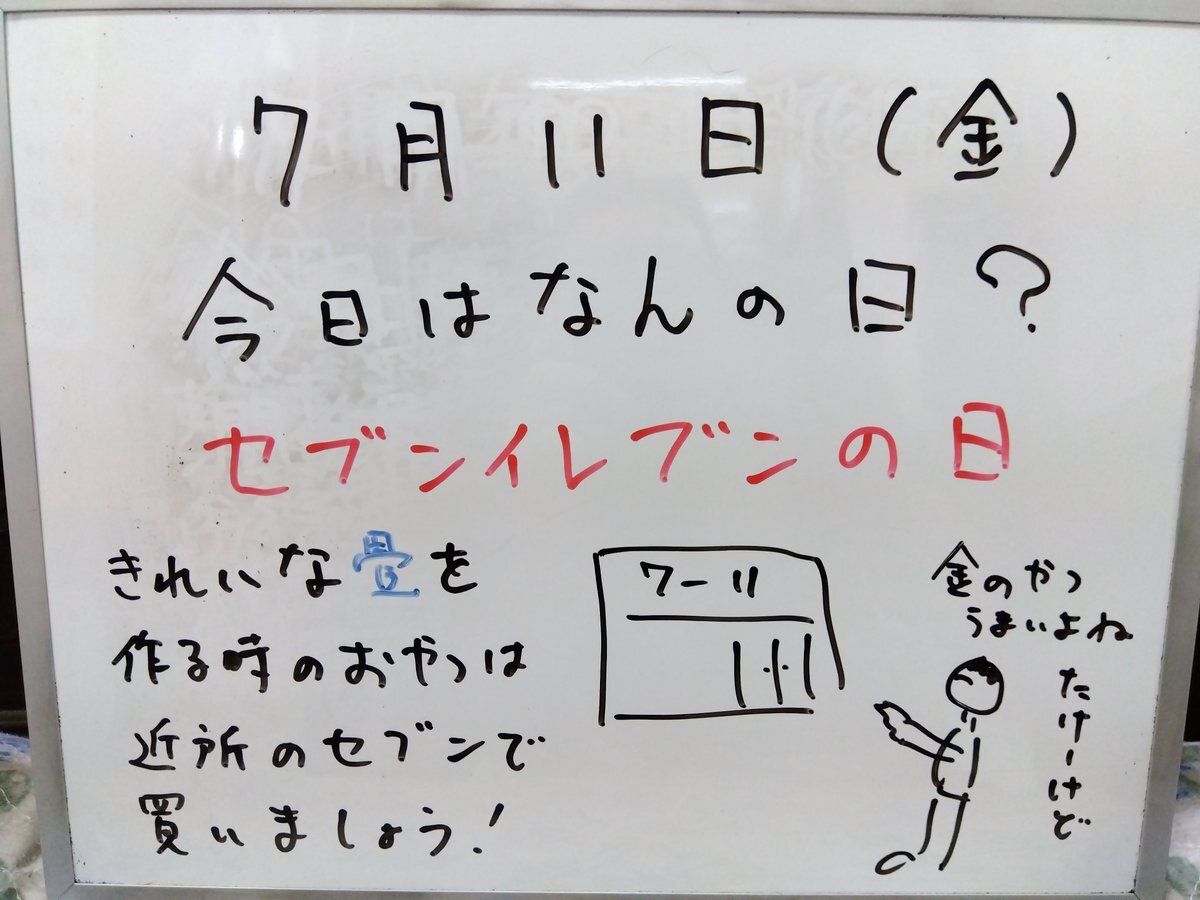 7月11日(金)
今日はなんの日?
セブンイレブンの日
きれいな畳を
作る時のおやつは
近所のセブンで
買いましょう!
7-11
金のやつ
うまいよね
たけーけど